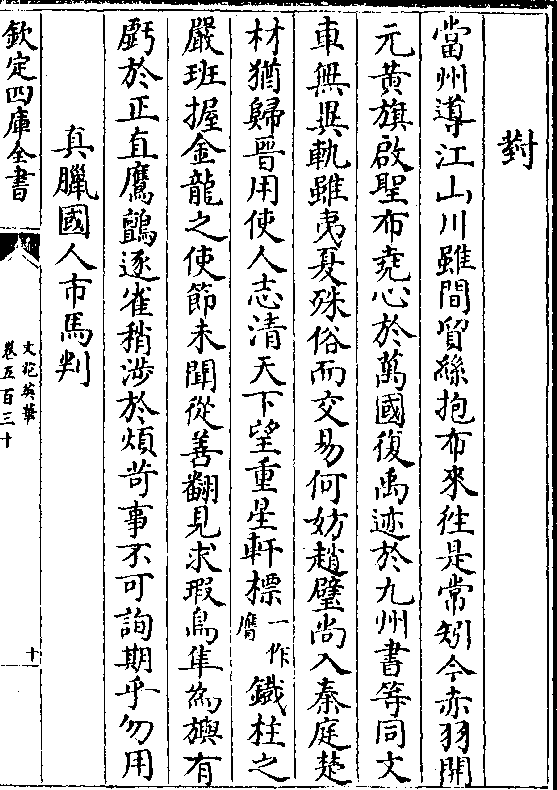 對
當州導江山川雖間貿絲抱布來往是常矧今赤羽開
元黄旗啟聖布堯心於萬國復禹迹於九州書等同文
車無異軌雖夷夏殊俗而交易何妨趙璧尚入秦庭楚
材猶歸晉用使人志清天下望重星軒標一作膺鐡柱之
嚴班握金龍之使節未聞從善翻見求瑕鳥隼為旟有
虧於正直鷹鸇逐雀稍渉於煩苛事不可詢期乎勿用
真臘國人市馬判
欽定四庫全書
文苑英華
卷五百三十
十